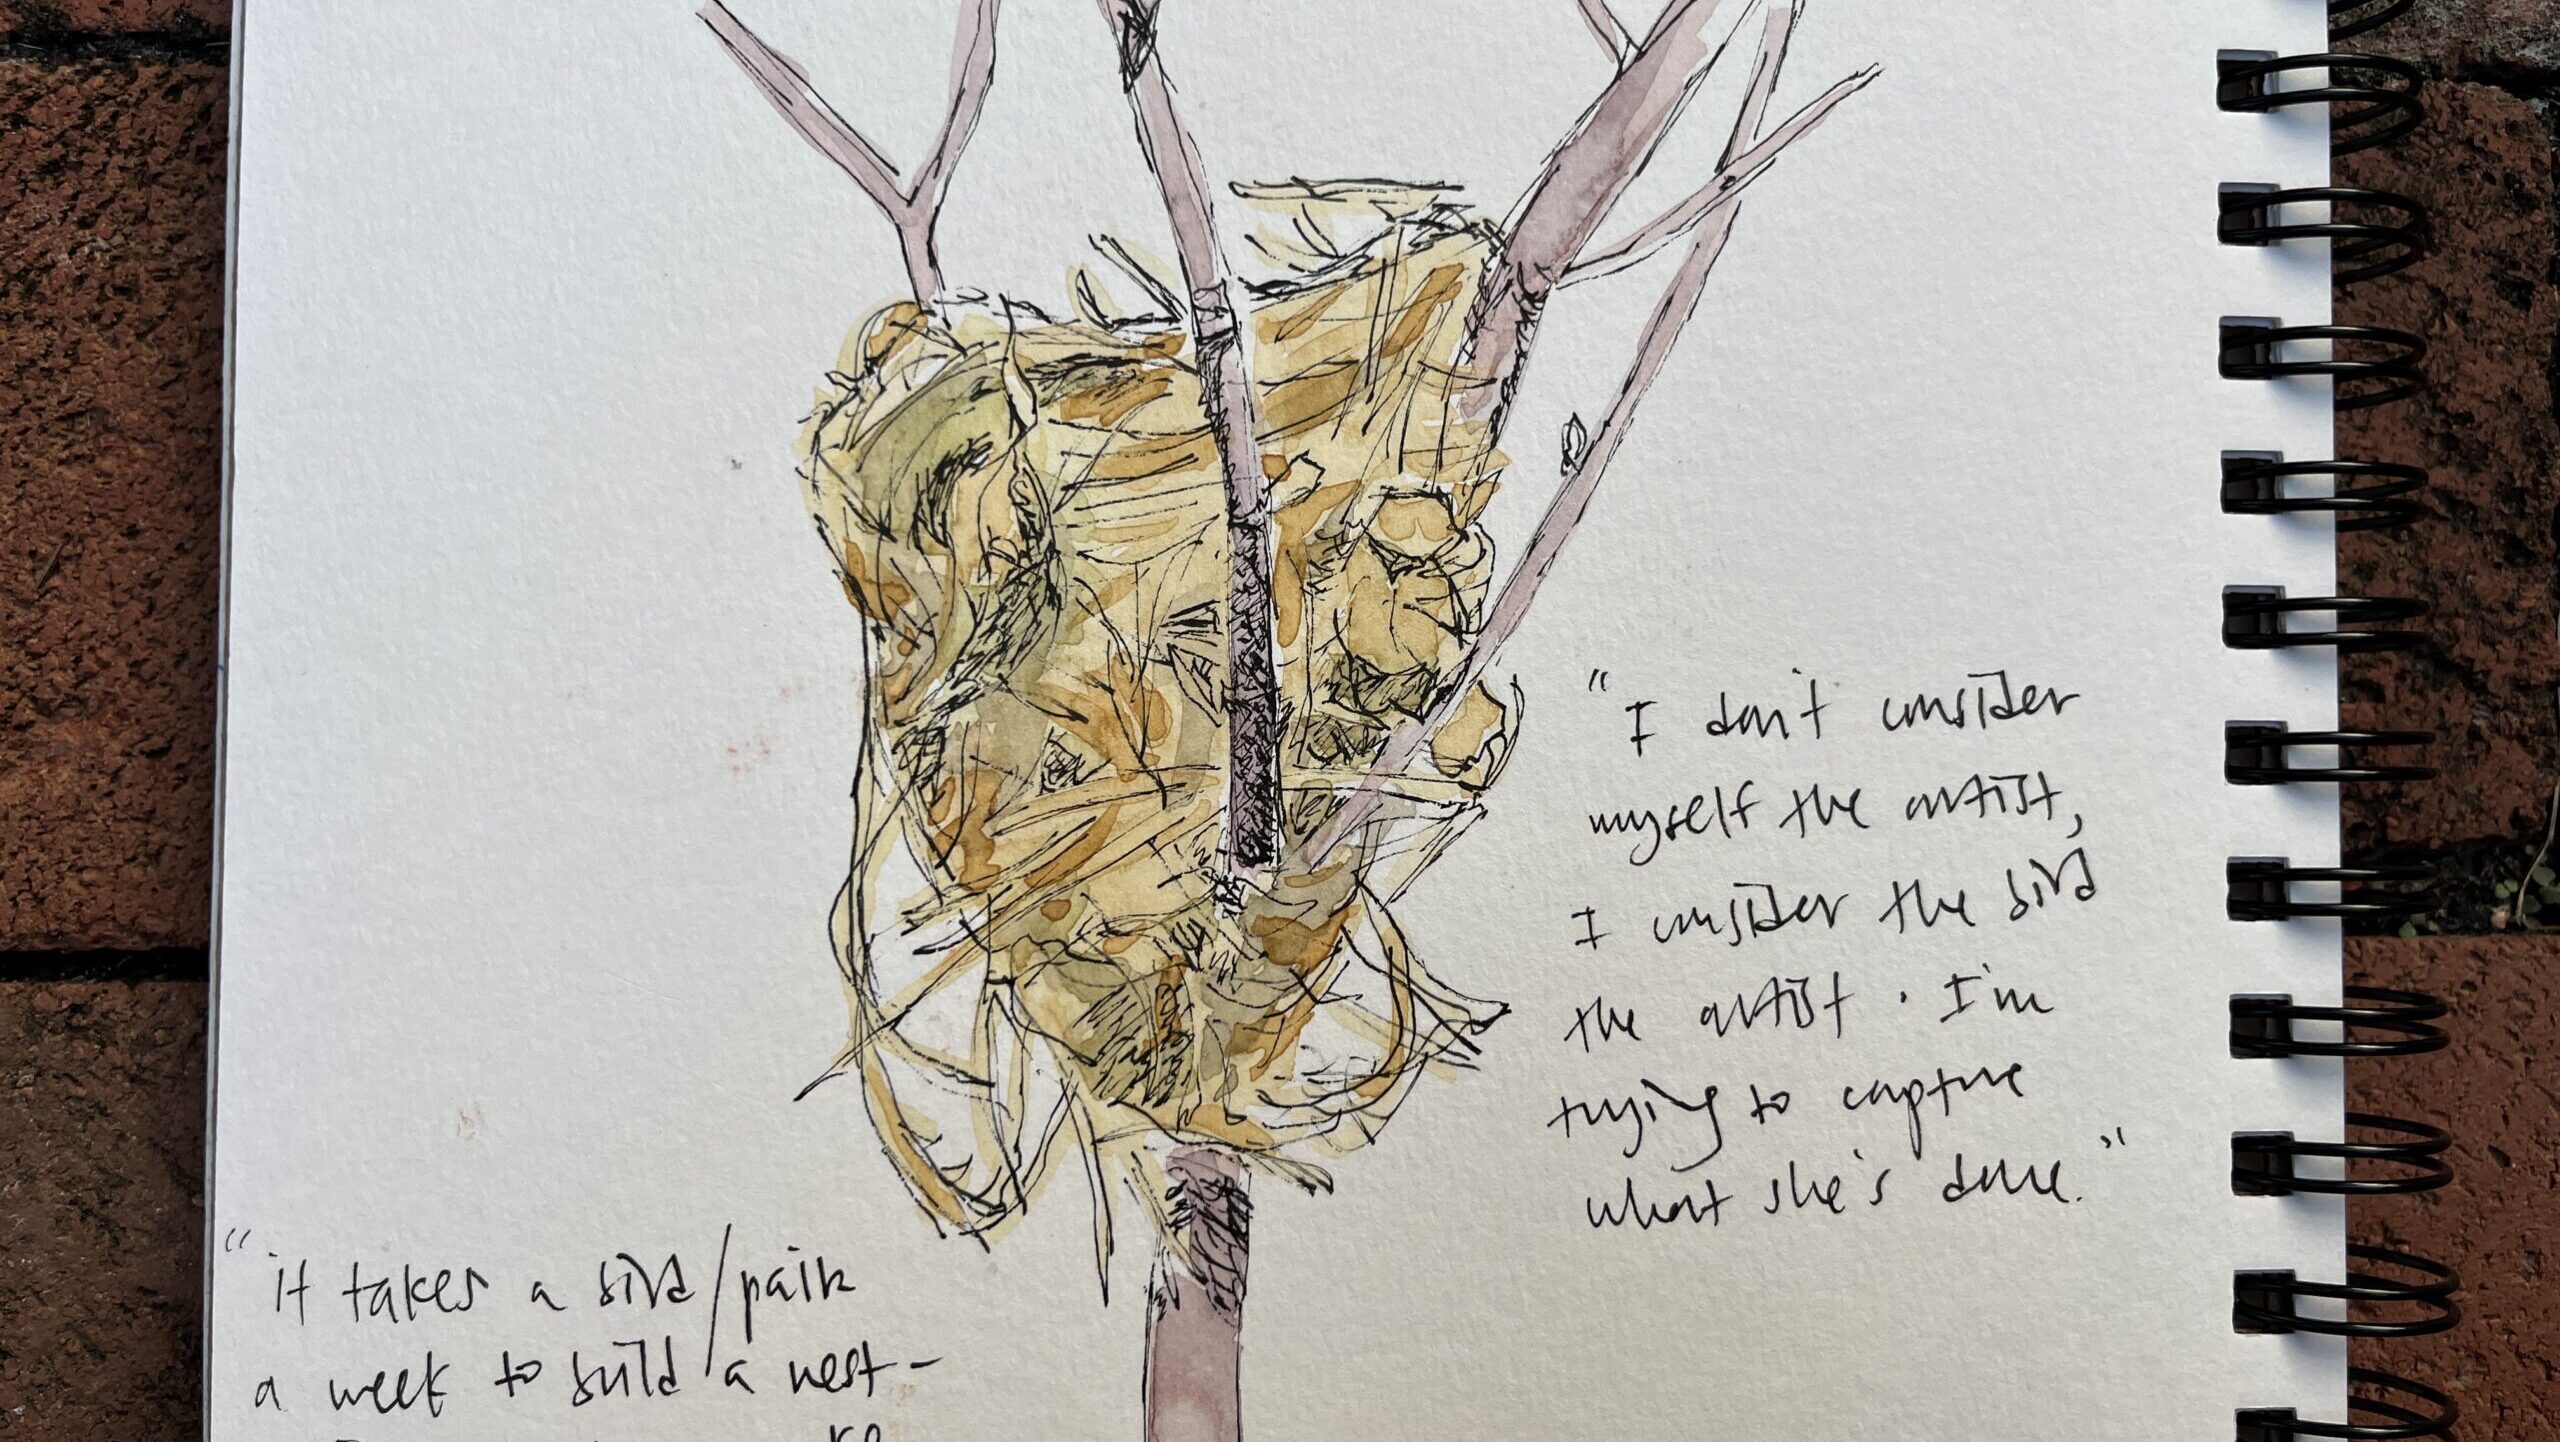 "I don't consider
myself the artist,
I consider the bird
the artist. I'm
trying to capture
what she's done."
"it takes a bird/pair
a week to build a nest-